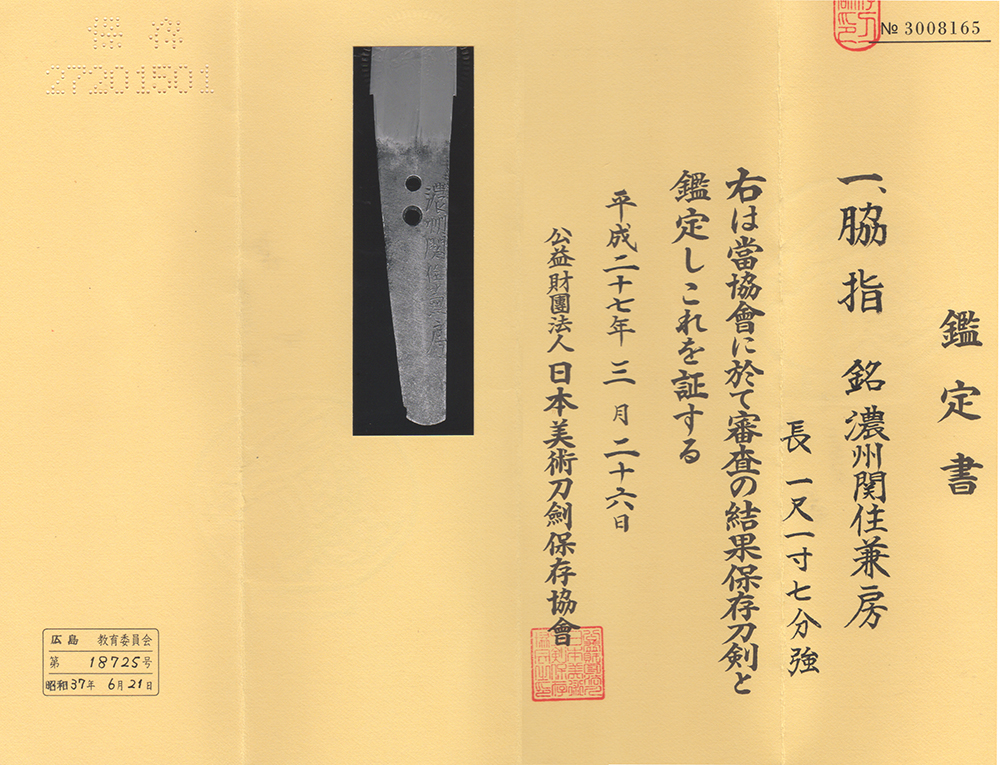 № 3008165
鑑定書
一、脇指 銘 濃州関住兼房
長 一尺一寸七分強
右は當協會に於て審査の結果保存刀剣と
鑑定しこれを証する
平成二十七年 三月二十六日
公益財團法人 日本美術刀劍保存協會
濃州関住兼房
保存
27201501
広島 教育委員会
第 18725号
昭和37年 6月21日